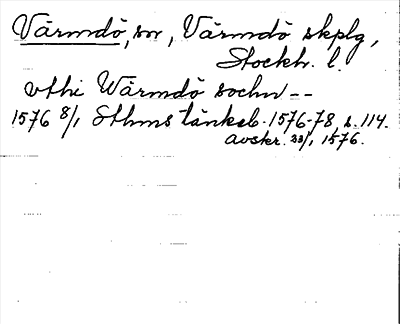 Värmdö, sn, Värmdö skplg,
Stockh. l.
vthi Wärmdö sochn --
1576 8/1 Sthms tänkeb. 1576-78, s. 114.
Avskr. 23/1, 1576.